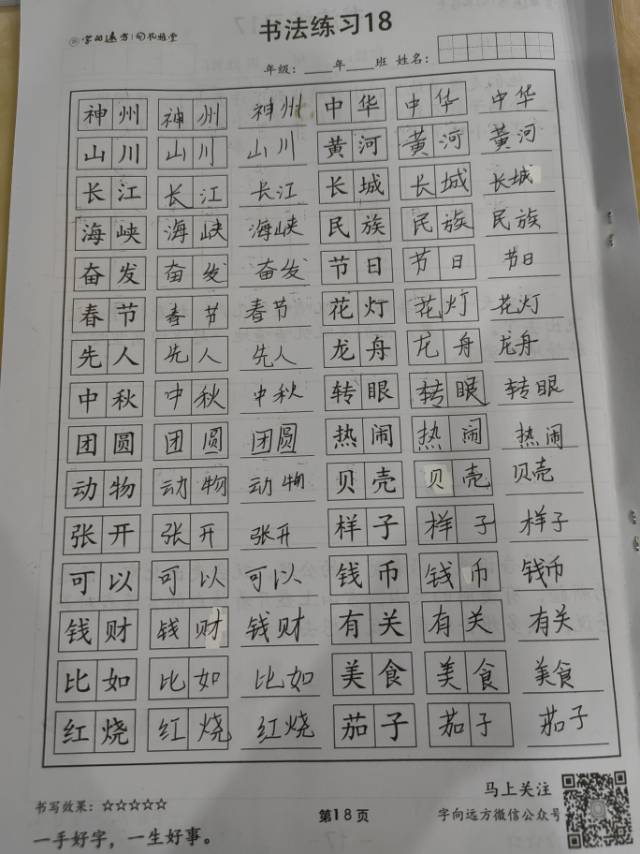 字向远方
书法练习18
年级：____年____班 姓名：
神州 神州 神州 中华 中华 中华
山川 山川 山川 黄河 黄河 黄河
长江 长江 长江 长城 长城 长城
海峡 海峡 海峡 民族 民族 民族
奋发 奋发 奋发 节日 节日 节日
春节 春节 春节 花灯 花灯 花灯
先人 先人 先人 龙舟 龙舟 龙舟
中秋 中秋 中秋 转眼 转眼 转眼
团圆 团圆 团圆 热闹 热闹 热闹
动物 动物 动物 贝壳 贝壳 贝壳
张开 张开 张开 样子 样子 样子
可以 可以 可以 钱币 钱币 钱币
钱财 钱财 钱财 有关 有关 有关
比如 比如 比如 美食 美食 美食
红烧 红烧 红烧 茄子 茄子 茄子
书写效果：☆☆☆☆☆
一手好字，一生好事。
第18页
马上关注
字向远方微信公众号